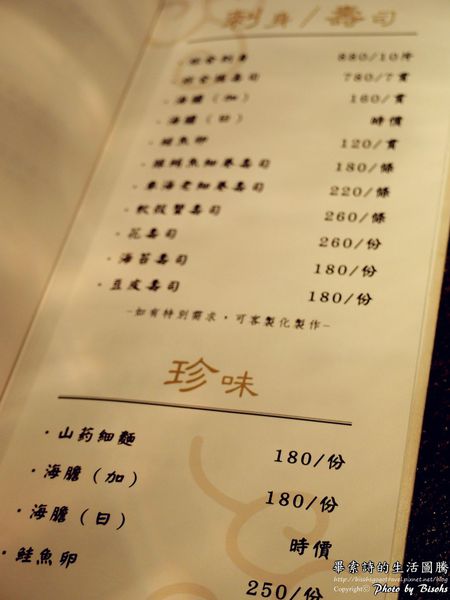 刺身/壽司
·綜合刺身 880/10片
·綜合握壽司 780/7貫
·海膽（加） 160/貫
·海膽（日） 時價
·鮭魚卵 120/貫
180/條
220/條
·軟殼蟹壽司 260/條
·花壽司 260/份
·海苔壽司 180/份
·豆皮壽司 180/份
-如有特別需求，可客製化製作-
珍味
·山葯細麵 180/份
·海膽（加） 180/份
·海膽（日） 時價
·鮭魚卵 250/份
畢索詩的生活圖騰
Copyright© Photo by Bisohs